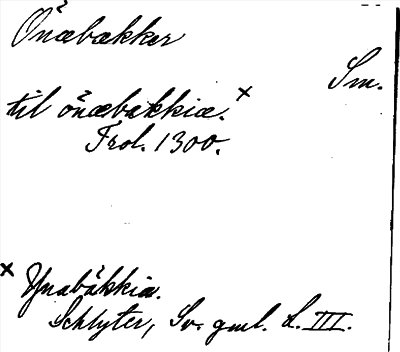 Önæbækker
Sm.
til önæbækkiæ.×
Frol. 1300.
× Ynabäkkia.
Schlyter, Sv. gml. L. III.